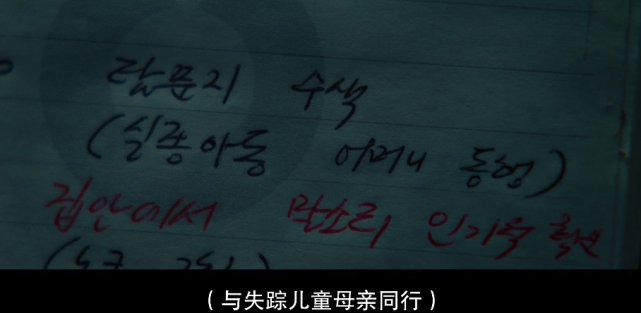 탐문지 수색
(실종아동 어머니 동행)
집안에서 말소리 인기척
（与失踪儿童母亲同行）